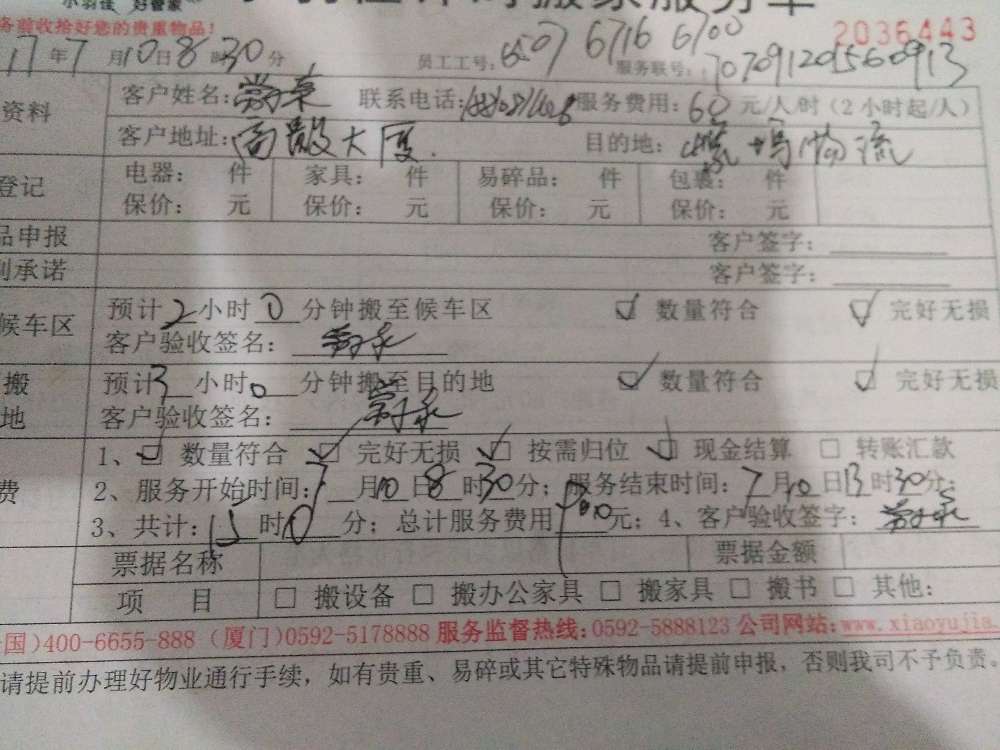 小羽佳 好管家 计时搬家服务单
务必验收拾好您的贵重物品! 2036443
17年7月10日8时30分 员工工号: 6507 6716 6700
服务联号: 1707091205560913
资料 客户姓名: 联系电话: 服务费用: 60元/人/时 (2小时起/人)
客户地址: 大厦 目的地: 物流
登记 电器: 件 家具: 件 易碎品: 件 包裹: 件
保价: 元 保价: 元 保价: 元 保价: 元
品申报 客户签字:
别承诺 客户签字:
候车区 预计2小时0分钟搬至候车区 数量符合 完好无损
客户验收签名:
搬 预计3小时0分钟搬至目的地 数量符合 完好无损
地 客户验收签名:
1、 数量符合 完好无损 按需归位 现金结算 转账汇款
费 2、服务开始时间:7月10日8时30分; 服务结束时间:7月10日13时30分;
3、共计:15时0分; 总计服务费用900元; 4、客户验收签字:
票据名称 票据金额
项 目 搬设备 搬办公家具 搬家具 搬书 其他:
国)400-6655-888 (厦门)0592-5178888 服务监督热线:0592-5888123 公司网站:www.xiaoyujia.
请提前办理好物业通行手续，如有贵重、易碎或其它特殊物品请提前申报，否则我司不予负责。